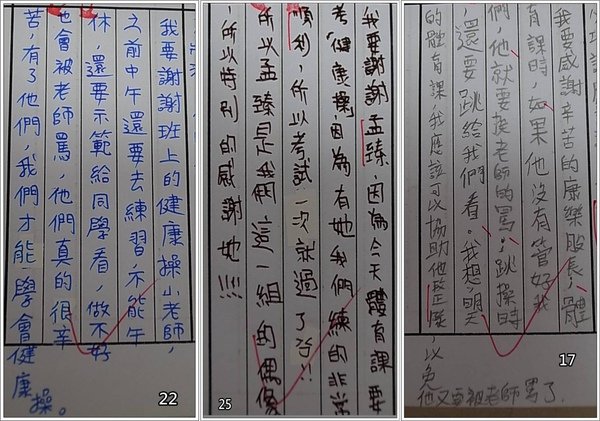 我要謝謝班上的健康操小老師，
之前中午還要去練習，不能午
休，還要示範給同學看，做不好
也會被老師罵，他們真的很辛
苦，有了他們，我們才能學會健康
操。
22
我要謝謝孟臻，因為今天體育課要
考健康操，因為有她我們練的非常
順利，所以考試一次就過了!!
所以孟臻是我們這一組的偶像
，所以特別的感謝她!!!!
25
我要感謝辛苦的康樂股長，體
育課時，如果他沒有管好我
們，他就要挨老師的罵。跳操時
還要跳給我們看。我想，明天
的體育課，我應該可以協助他整隊，以免
他又要被老師罵了。
17